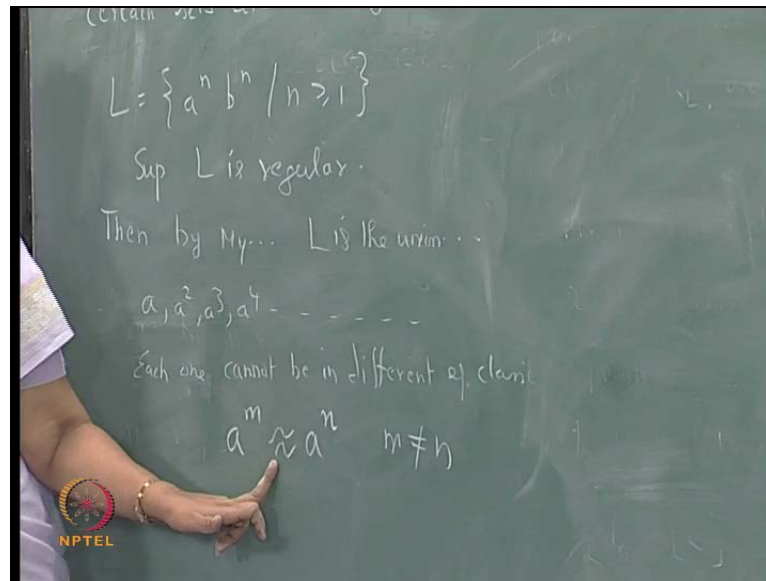 certain sets
L = { aⁿ bⁿ / n ≥ 1 }
Sup L is regular.
Then by My... L is the union...
a, a², a³, a⁴ - - - - - -
Each one cannot be in different eq. class
aᵐ ≈ aⁿ m ≠ n
NPTEL